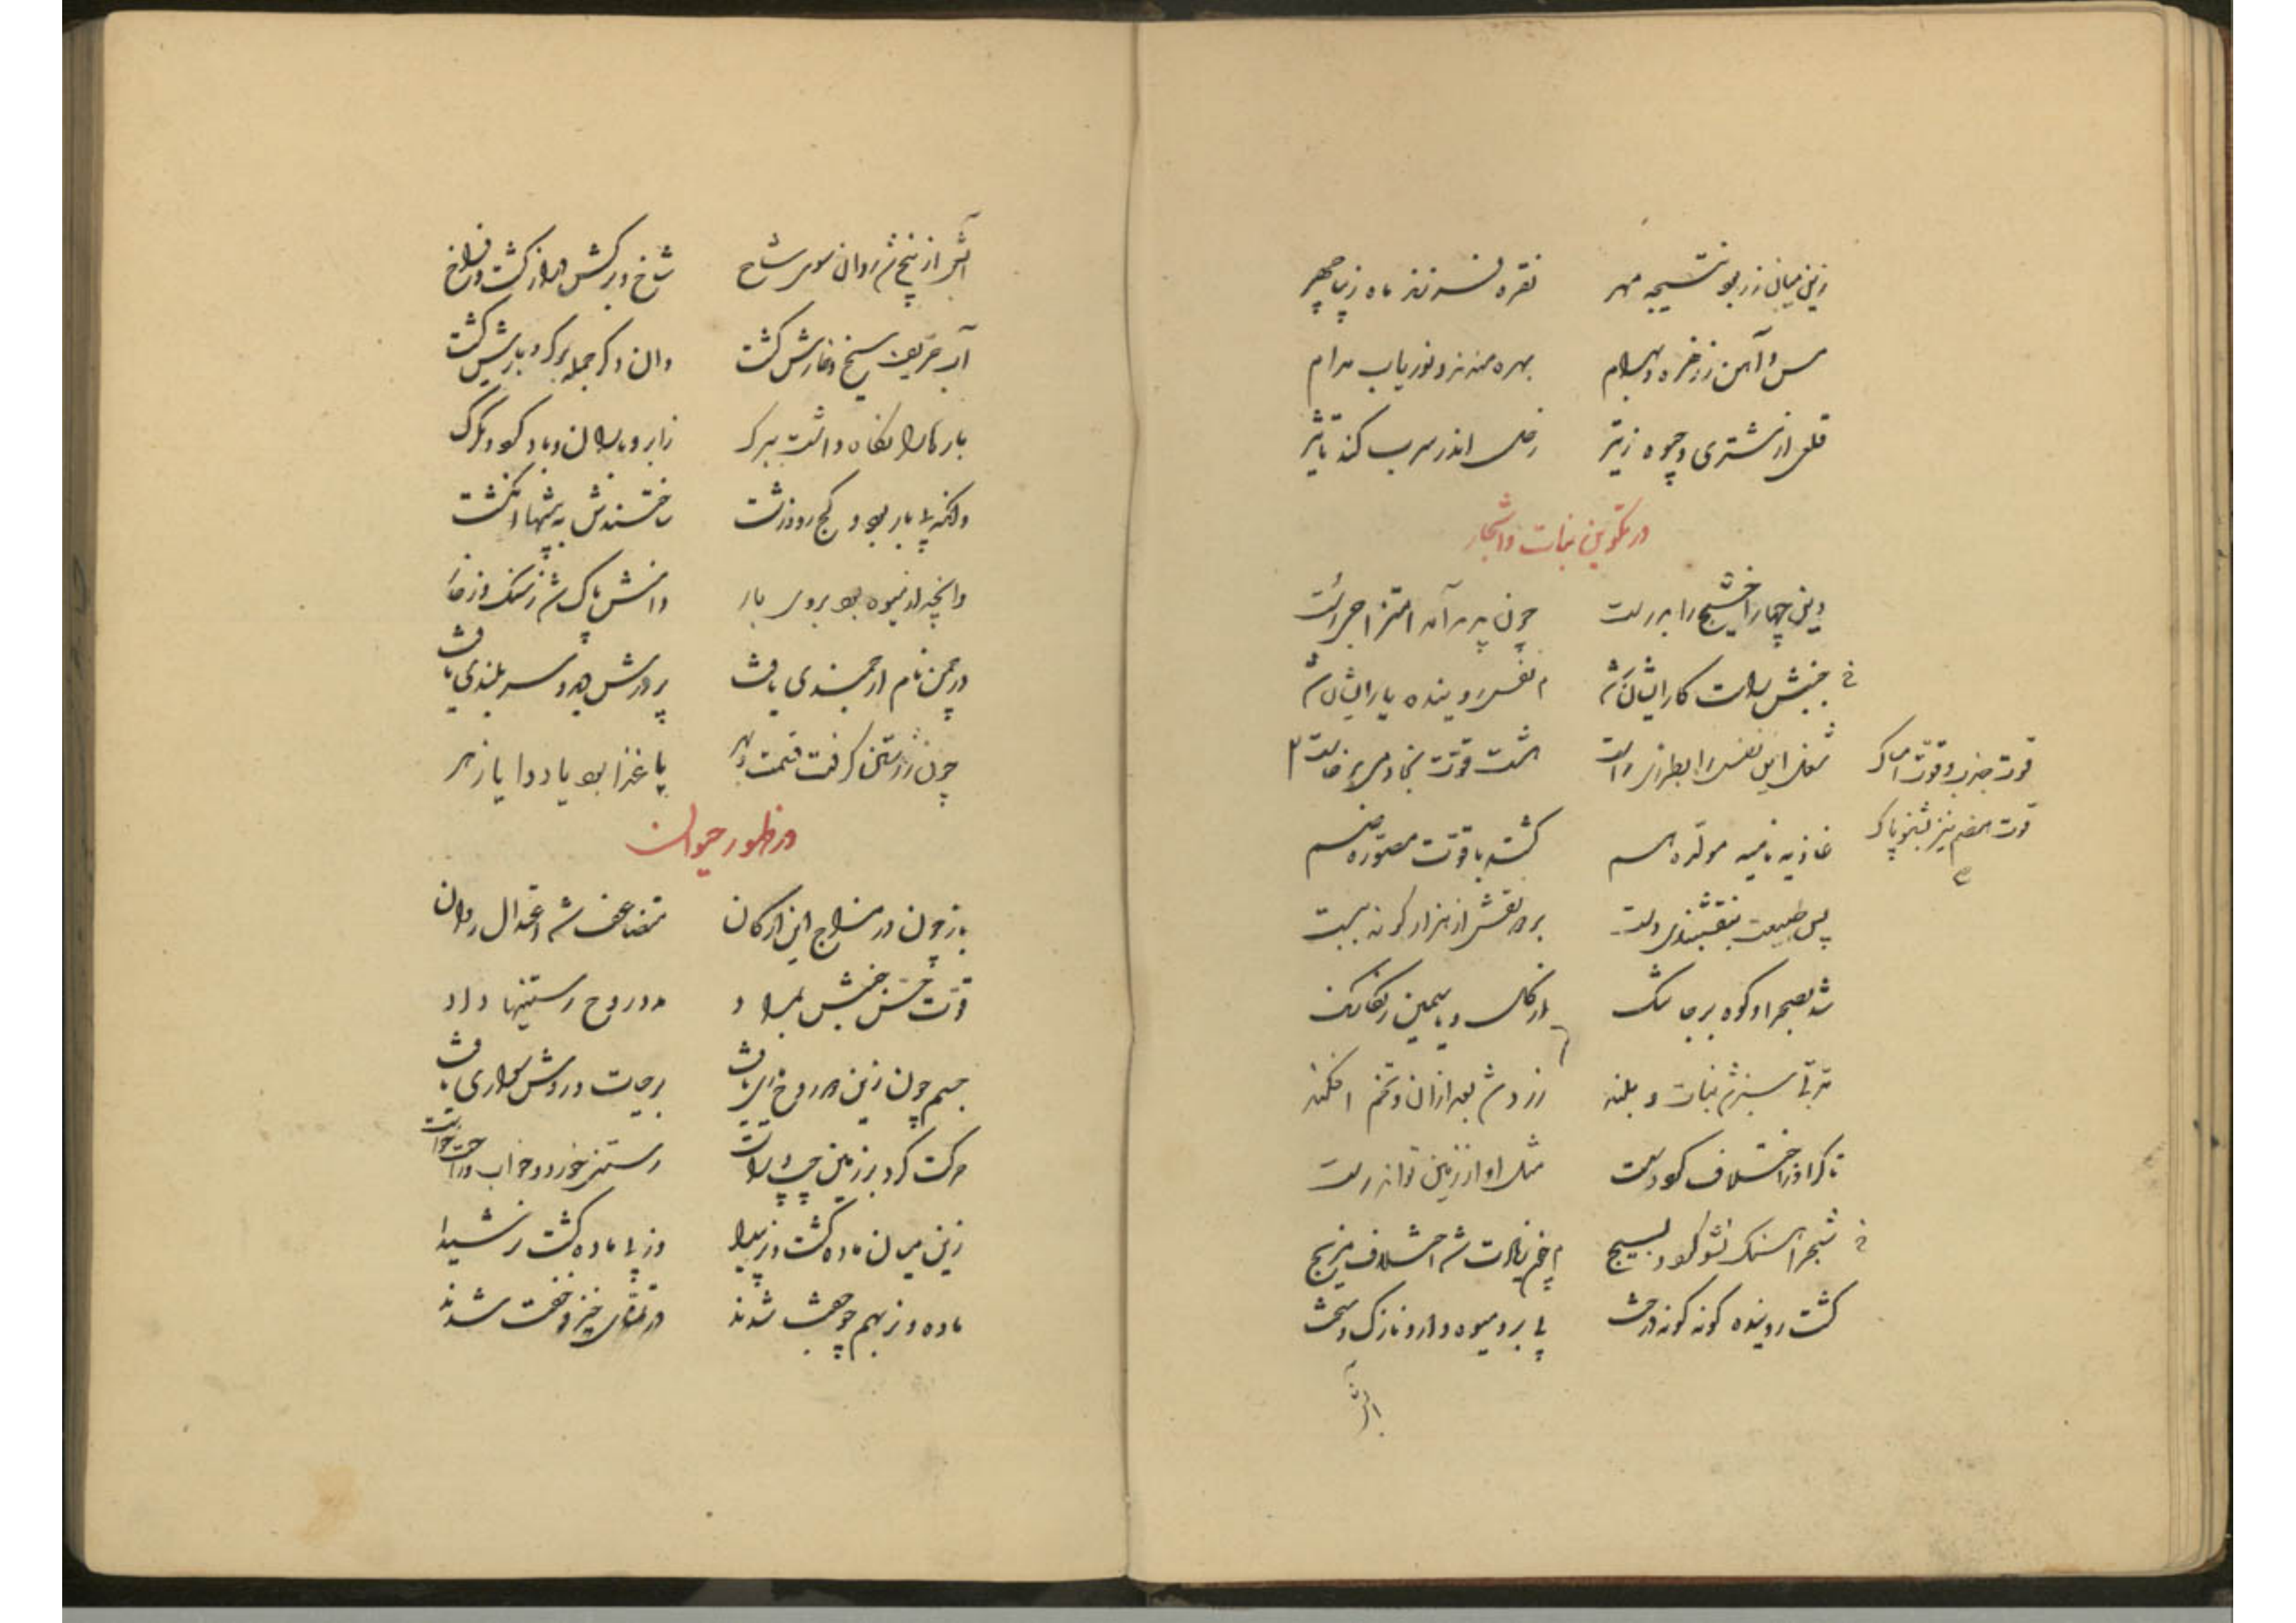 زین میان زر بود نتیجه مهر نقره فرزند ماه زیبا چهر
مس و آهن ز زهره و بهرام بهره مندند و نوریاب مدام
قلعی از مشتری و جیوه ز تیر زحل اندر سرب کند تاثیر
در تکوین نبات و اشجار
وین چهار اخشیج را بدرست چون پدید آمد امتزاج نخست
جنبش راست کار ایشان شد نفس روینده یار ایشان شد
شغل این نفس را بطرزی راست هشت قوت بخادمی برخاست
قوت جذب و قوت امساک
قوت هضم نیز بشنو پاک
غاذیه نامیه مولده هم گشته با قوت مصوره ضم
پس طبیعت بنقشبندی دست برد نقش از هزار گونه ببست
شد بصحرا و کوه بر جا سنگ از گل و یاسمین رنگارنگ
تربتی سبز شد نبات و بلند زرد شد بعد از آن و تخم افکند
تا گر او ز اختلاف گردد سست مثل او از زمین تواند رست
شجر آهنگ نشو کرد بسیج
گشت روینده گونه گونه درخت بی بر و میوه دار و نازک و سخت
آبش از بیخ شد روان سوی شاخ شاخ و برگش دراز گشت و فراخ
آب حریف بیخ و خارش گشت وان دگر جمله برگ و بارش گشت
بار ها را نگاه داشت ببرگ ز ابر و باران و باد گرد و تگرگ
وانکه بی بار بود و کج رو و زشت ساختندش به بیشها
وانچه از میوه بود بروی بار دامنش پاک شد ز سنگ و ز خار
در چمن نام ارجمندی یافت پرورش دید و سربلندی یافت
چون ز رستن گرفت قسمت و بهر یا غذا بود یا دوا یا زهر
در ظهور حیوان
باز چون در مزاج این ارکان متضاعف شد اعتدال روان
قوت حس و جنبش بمراد مدد روح رستنیها داد
جسم چون زین دو روح یاری یافت بر حیات و روش سواری یافت
حرکت کرد بر زمین چپ و راست رستنی خورد و خواب و راحت خواست
زین میان ماده گشت و نر پیدا وز پی ماده گشت نر شیدا
ماده و نر بهم چو جفت شدند در تمنای خیز و خفت شدند